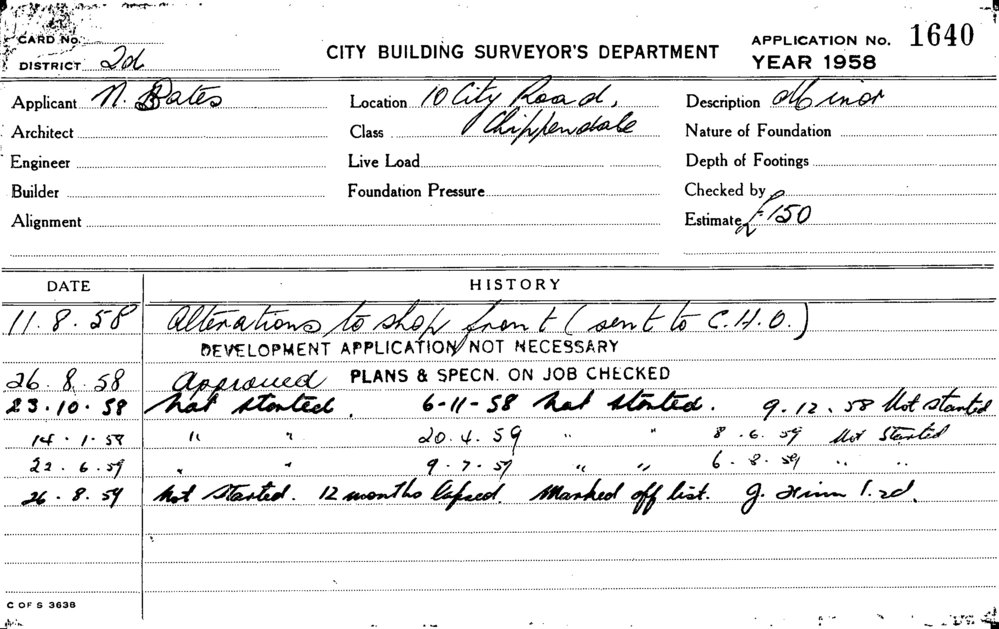 CARD No.
DISTRICT 2d
CITY BUILDING SURVEYOR'S DEPARTMENT
APPLICATION No. 1640
YEAR 1958
Applicant N. Bates Location 10 City Road, Description Minor
Architect Class Chippendale Nature of Foundation
Engineer Live Load Depth of Footings
Builder Foundation Pressure Checked by
Alignment Estimate £150
DATE HISTORY
11.8.58 Alterations to shop front (sent to C.H.O.)
DEVELOPMENT APPLICATION NOT NECESSARY
26.8.58 Approved PLANS & SPECN. ON JOB CHECKED
23.10.58 Not started. 6-11-58 Not started. 9.12.58 Not started
14.1.59 " " 20.4.59 " " 8.6.59 Not Started
22.6.59 " " 9.7.59 " " 6.8.59 " "
26.8.59 Not Started. 12 months lapsed. Marked off list. J.
C OF S 3638